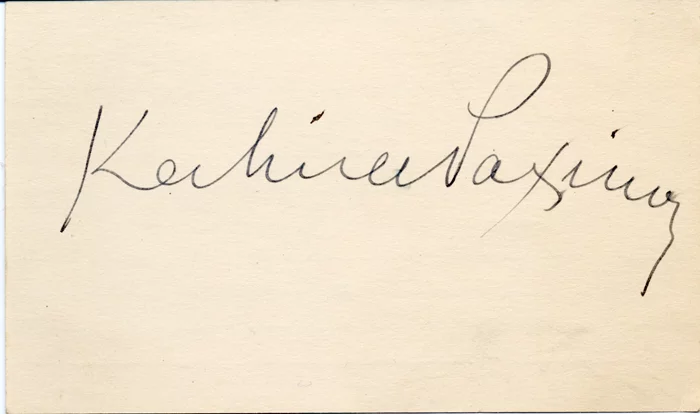 Katina Paxinou